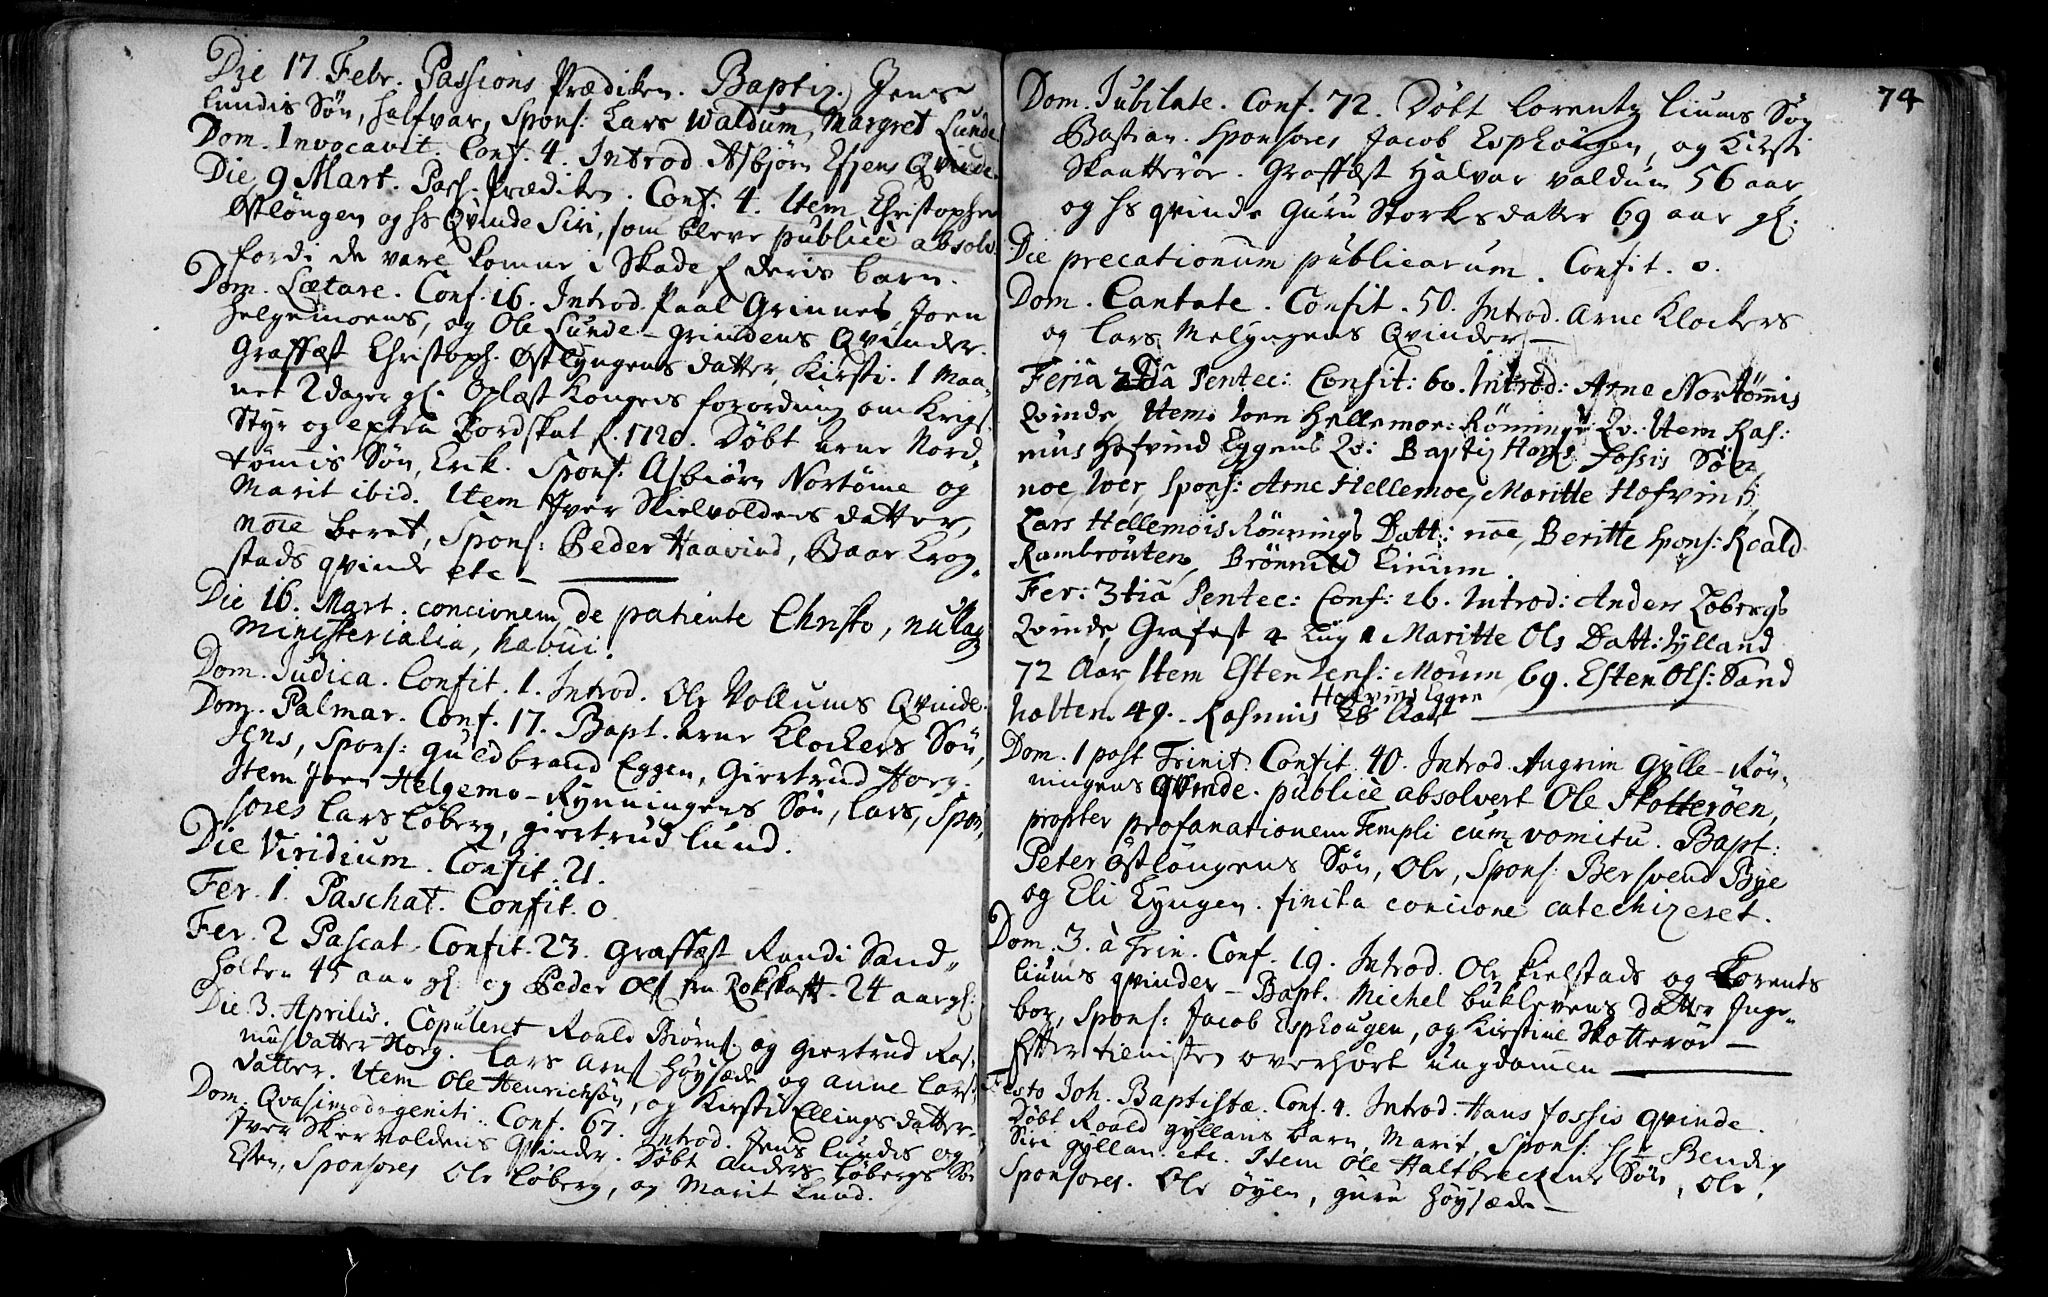 Die 17 Febr. Passions Prædiken. Baptiz. Jens
Lundis Søn, Halfvar, Spons: Lars Waldum, Margret Lunde
Dom. Invocavit. Conf. 4. Introd. Asbjørn Qvinde.
Die 9 Mart. Pass. Prædiken. Conf. 4. Item Christopher
Østlöngen og hs Qvinde Siri, som bleve publicè absolv.
fordi de vare komne i Skade f deris barn.
Dom. Lætare. Conf. 16. Introd. Paal Grinnes, Joen
Helgemoens, og Ole Lunde-grindens Qvinder.
Graffæst Christoph. Østlyngens datter, Kirsti. 1 Maa-
net 2 dager gl. Oplæst Kongens forordning om Krigs
Styr og extra Pordskat f. 1720. Døbt Arne Nord-
tömis Søn, Erik. Spons. Asbiørn Nortöme og
Marit ibid. Item Iver Skielvoldens datter,
noie Beret, Spons: Peder Haavind, Baar Krog-
stads qvinde etc —
Die 16. Mart. concionem de patiente Christo, nulla
ministerialia, habui.
Dom. Judica. Confit. 1. Introd. Ole Vollums Qvinde.
Dom. Palmar. Conf. 17. Bapt. Arne Klockers Søn,
Jens, Spons: Guldbrand Eggen, Giertrud Horg.
Item Joen Helgemo-Rynningens Søn, Lars, Spon-
sores Lars Løberg, giertrud Lund.
Die Viridium. Confit. 21.
Fer. 1. Paschat. Confit. 0.
Fer. 2 Pascat. Confit. 23. Graffæst Randi Sand-
holten 45 aar gl. og Peder Ols fra 24 aar gl.
Die 3. Aprilis. Copuleret Roald Biørns. og Giertrud Ras-
musdatter Horg. Lars Arns Høysæde og Anne Lars-
datter. Item Ole Henrichsøn, og Kirsti Ellingsdatter.
Dom. Qvasimodogeniti. Conf. 67. Introd. Jens Lundis og
Iver Skervoldens Qvinder. Døbt Anders Løbergs Søn
Esten, Sponsores Ole Løberg, og Marit Lund.
74
Dom. Jubilate. Conf. 72. Döbt Lorentz Liums Søn
Bastian. Sponsores Jacob Esphougen, og Kirsti
Skaatterøe. Graffæst Halvar Valdum 56 aar
og hs qvinde Guru Storksdatter 69 aar gl.
Die precationum publicarum. Confit. 0.
Dom. Cantate. Confit. 50. Introd. Arne Klockers
og Lars Melyngens Qvinder —
Feria 2diâ Pentec: Confit: 60. Introd: Arne Nortömis
Qvinde, Item Joen Hellemoe: Rönnings Qv: Item Ras:
mus Hofvind Eggens Qv: Baptiz Hans Fossis Sön
noe, Iver, Spons: Arne Hellemoe, Maritte Hofvind.
Lars Hellemois Rönnings Datt: noe, Beritte Spons: Roald
Rambrouten, Brönnild Liuum.
Fer: 3tiâ Pentec: Conf: 26. Introd: Anders Löbergs
Qvinde, Grafest 4 Maritte Ols Datt: Gylland
72 Aar, Item Esten Jens: Moum 69. Esten Ols: Sand
Hofvind Eggen
holten 49. Rasmus 28 Aar —
Dom. 1 post Trinit. Confit. 40. Introd. Angrim Gylle-Rön-
ningens Qvinde. publicè absolvert Ole Skotterøen,
propter profanationem Templi cum vomitu. Bapt:
Peter Östlöngens Søn, Ole, Spons: Bersvend Bye
og Eli Lyngen. finita concione catechizeret.
Dom. 3. à Trin. Conf. 19. Introd. Ole Kielstads og Lorents
Liums qvinder — Bapt. Michel Buklevens datter Inge-
bor, Spons: Jacob Esphougen, og Kirstine Skotterøe —
Efter tienisten overhört ungdommen —
Festo Joh. Baptistæ. Conf. 4. Introd. Hans Fossis qvinde.
Døbt Roald Gyllans barn, Marit, Spons: Hr Bendix
Siri Gyllan etc. Item Ole Haltbreckens Søn, Ole,
Sponsores. Ole Øyen, Guru Høysæde —